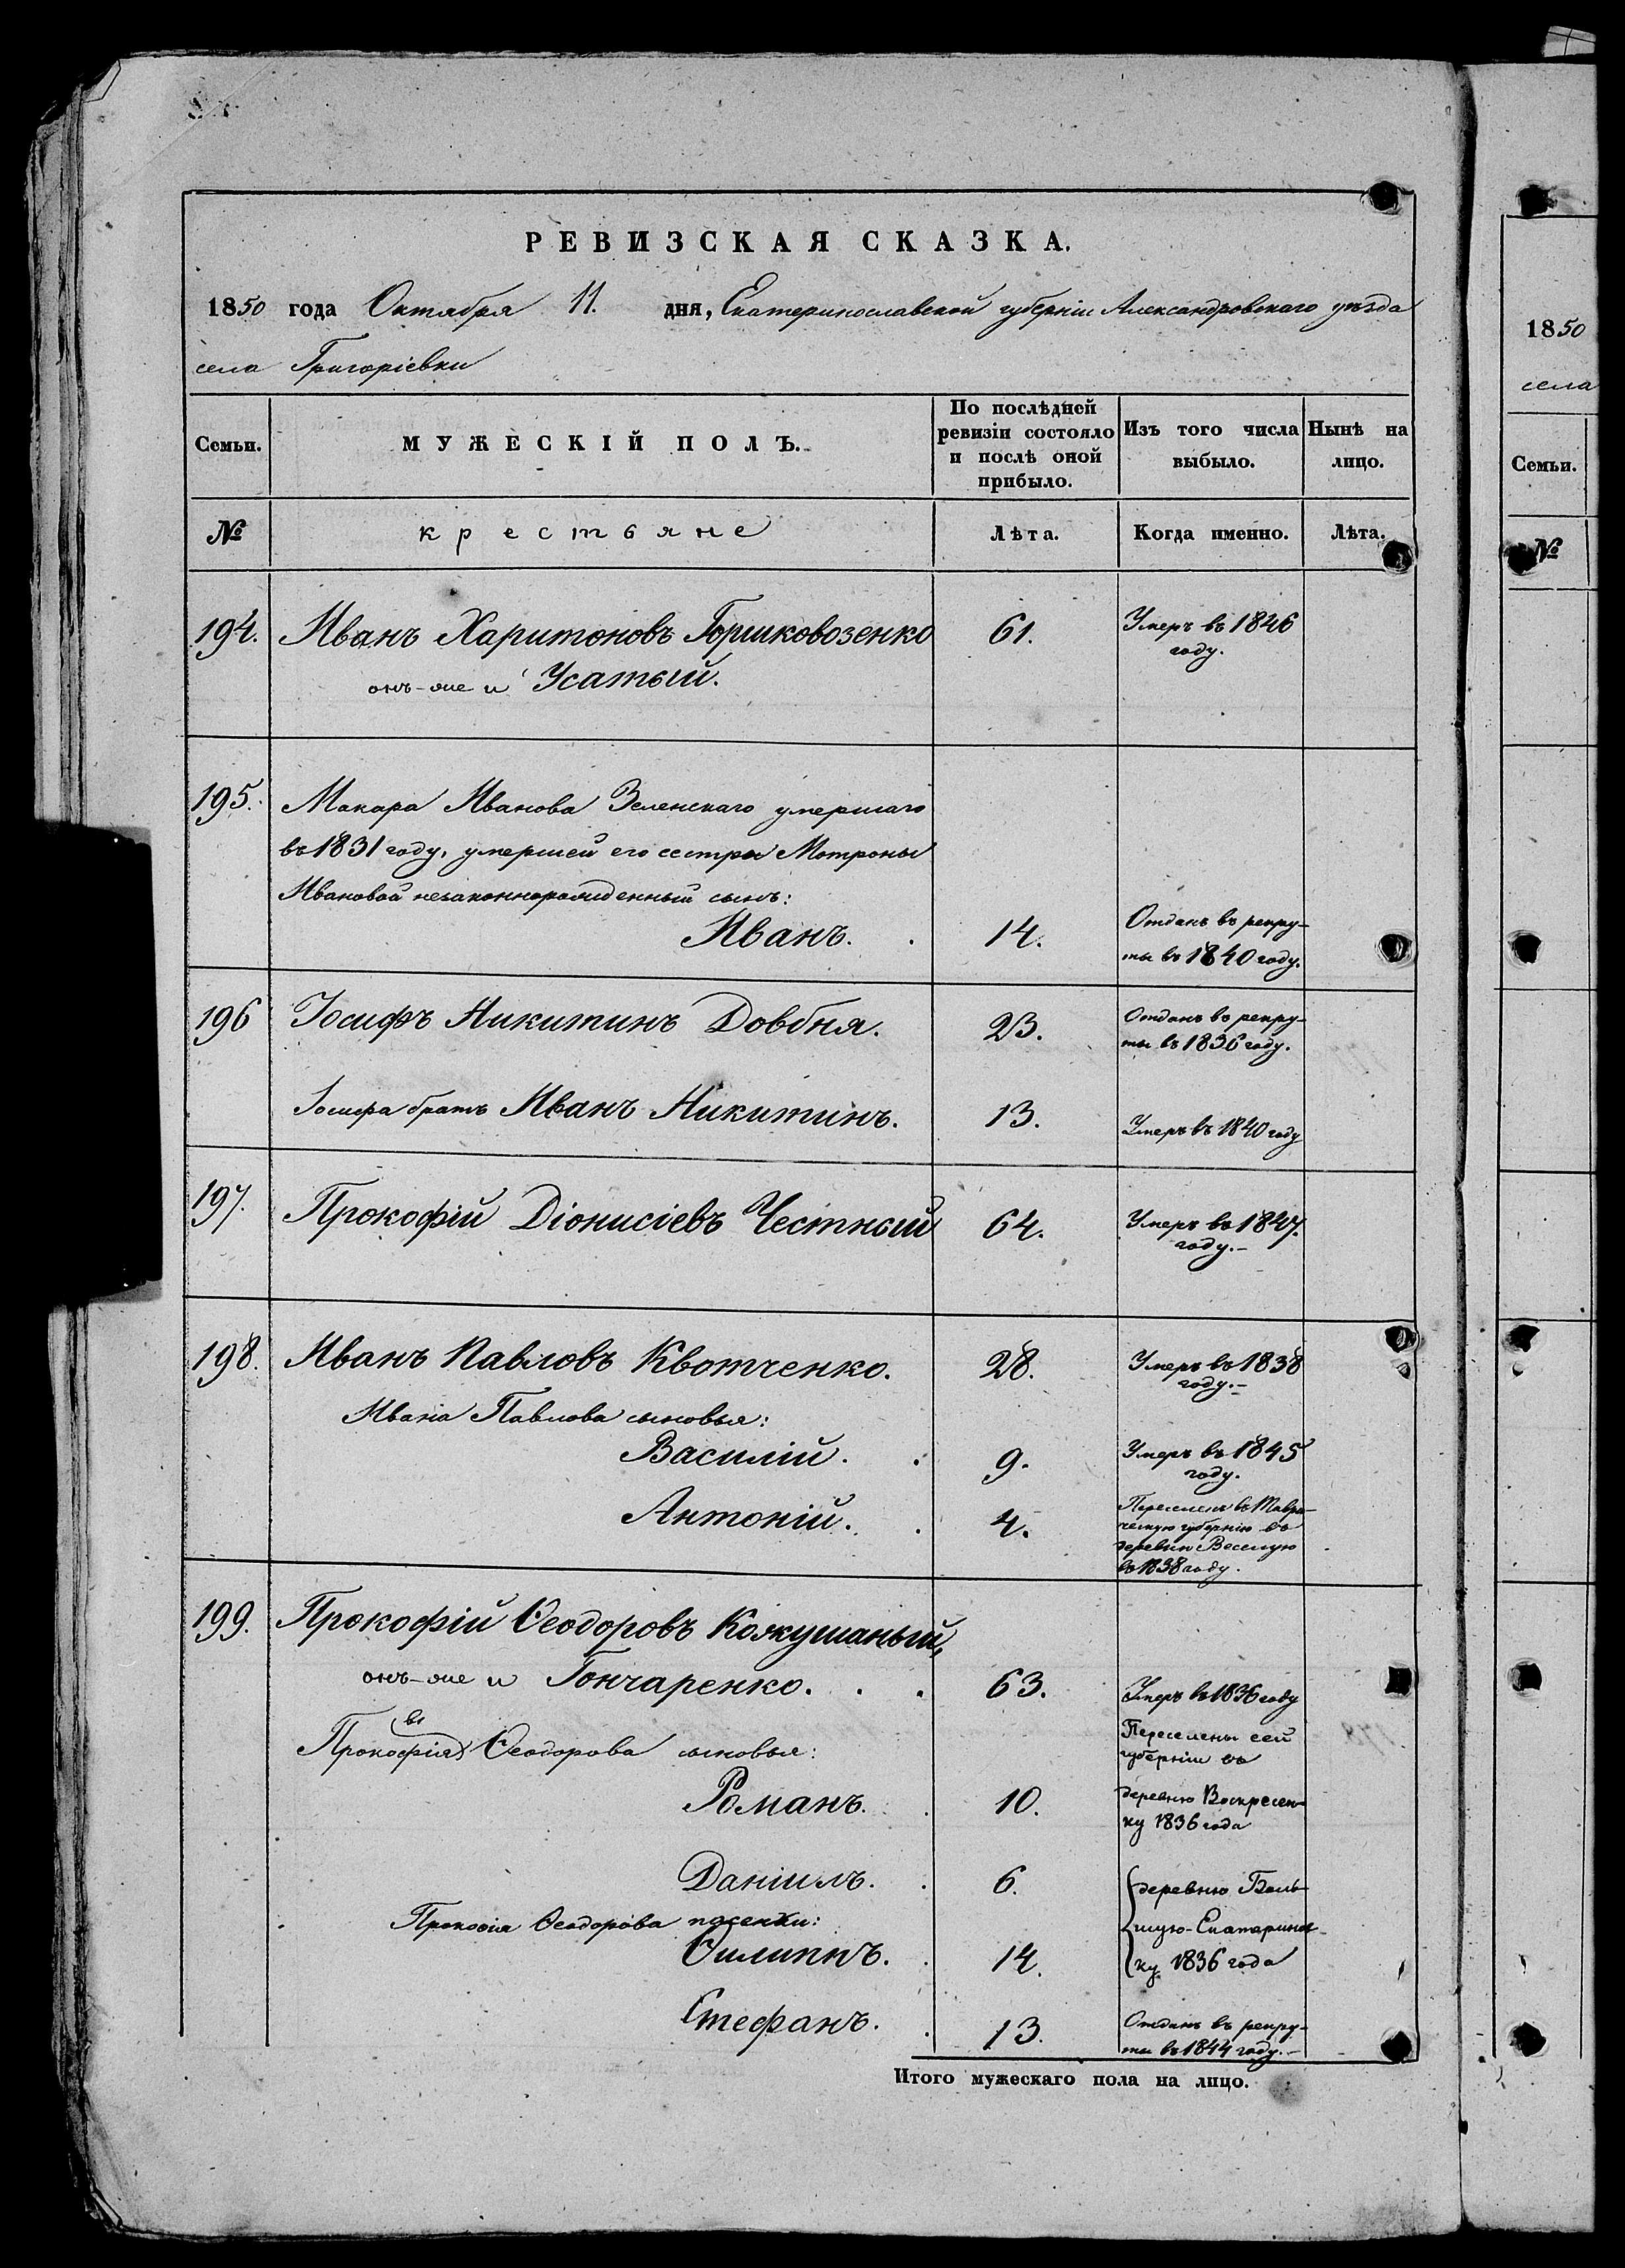 РЕВИЗСКАЯ СКАЗКА.
1850 года Октября 11. дня, Екатеринославской губерніи Александровскаго уѣзда
села Григоріевки
Семьи. МУЖЕСКІЙ ПОЛЪ. По послѣдней ревизіи состояло и послѣ оной прибыло. Изъ того числа выбыло. Нынѣ на лицо.
№ крестьяне Лѣта. Когда именно. Лѣта.
194. Иванъ Харитоновъ Горшковозенко 61. Умеръ въ 1846
году.
онъ-же и Усатый.
195. Макара Иванова Зеленскаго умершаго
въ 1831 году, умершей его сестры Мотроны
Ивановой незаконнорожденный сынъ:
Иванъ. 14. Отданъ въ рекру-
ты въ 1840 году.
196 Іосифъ Никитинъ Довбня. 23. Отданъ въ рекру-
ты въ 1836 году.
Іосифа братъ Иванъ Никитинъ. 13. Умеръ въ 1840 году
197. Прокофій Діонисіевъ Честный 64. Умеръ въ 1847.
году.-
198. Иванъ Павловъ Квотченко. 28. Умеръ въ 1838
году.-
Ивана Павлова сыновья:
Василій. 9. Умеръ въ 1845
году.
Антоній. 4. Переселенъ въ Таври-
ческую губернію въ
деревню Веселую
въ 1838 году.
199. Прокофій Ѳеодоровъ Кожушаный,
онъ-же и Гончаренко. 63. Умеръ въ 1836 году
Прокофія Ѳеодорова сыновья: Переселены сей
губерніи въ
Романъ. 10. деревню Воскресен-
ку 1836 года
Даніилъ. 6. деревню Боль-
Прокофія Ѳеодорова пасенки: шую-Екатаринов-
Ѳилиппъ. 14. ку 1836 года
Стефанъ. 13. Отданъ въ рекру-
ты въ 1844 году.-
Итого мужескаго пола на лицо.
1850
села
Семьи.
№